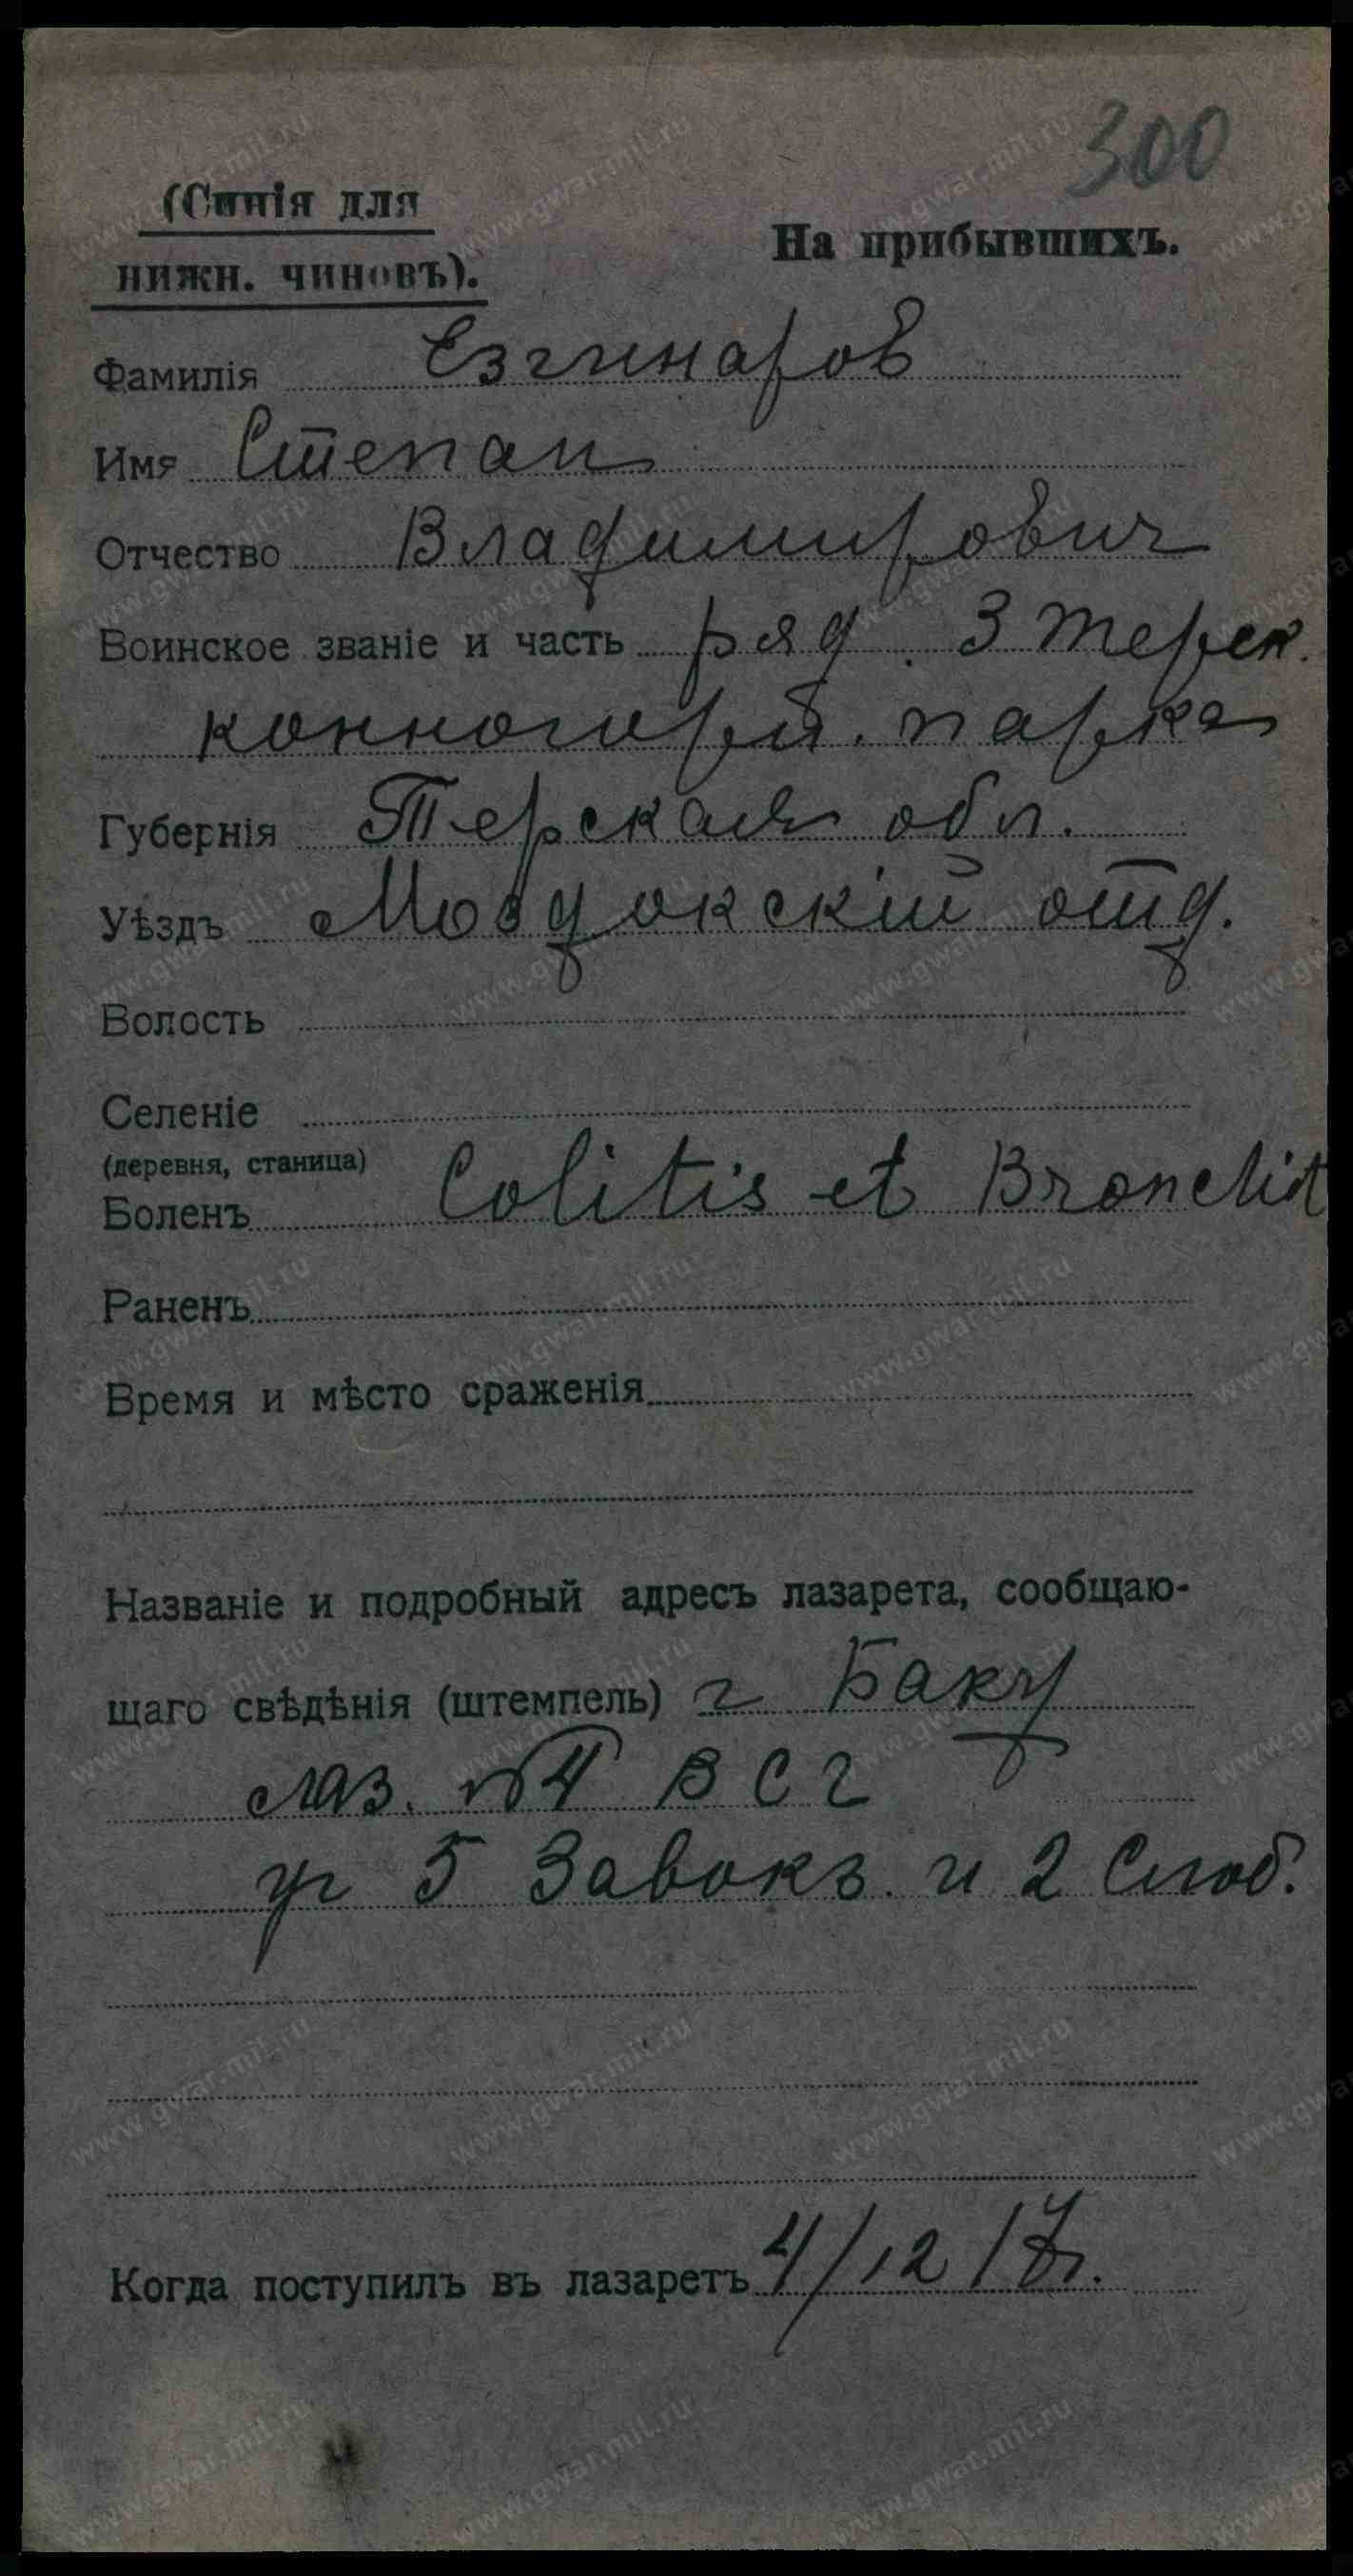 300
(Синія для
нижн. чиновъ).
На прибывшихъ.
Фамилія Езгинаров
Имя Степан
Отчество Владимирович
Воинское званіе и часть ряд. 3 Терск.
конногорн. парка
Губернія Терская обл.
Уѣздъ Моздокскій отд.
Волость
Селеніе
(деревня, станица)
Боленъ Colitis et Bronchit
Раненъ
Время и мѣсто сраженія
Названіе и подробный адресъ лазарета, сообщаю-
щаго свѣдѣнія (штемпель) г Баку
лаз. №4 В С Г
уг 5 Завокз. и 2 Слоб.
Когда поступилъ въ лазаретъ 4/12 17г.